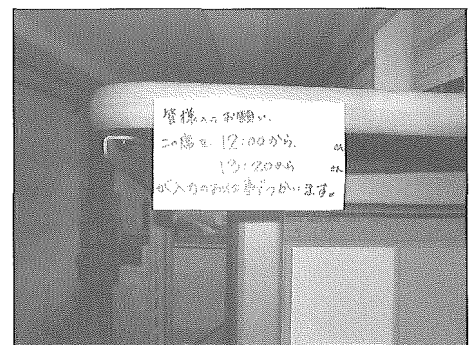 皆様へのお願い
この席を 12:00から
13:20から
が入力のために使います。